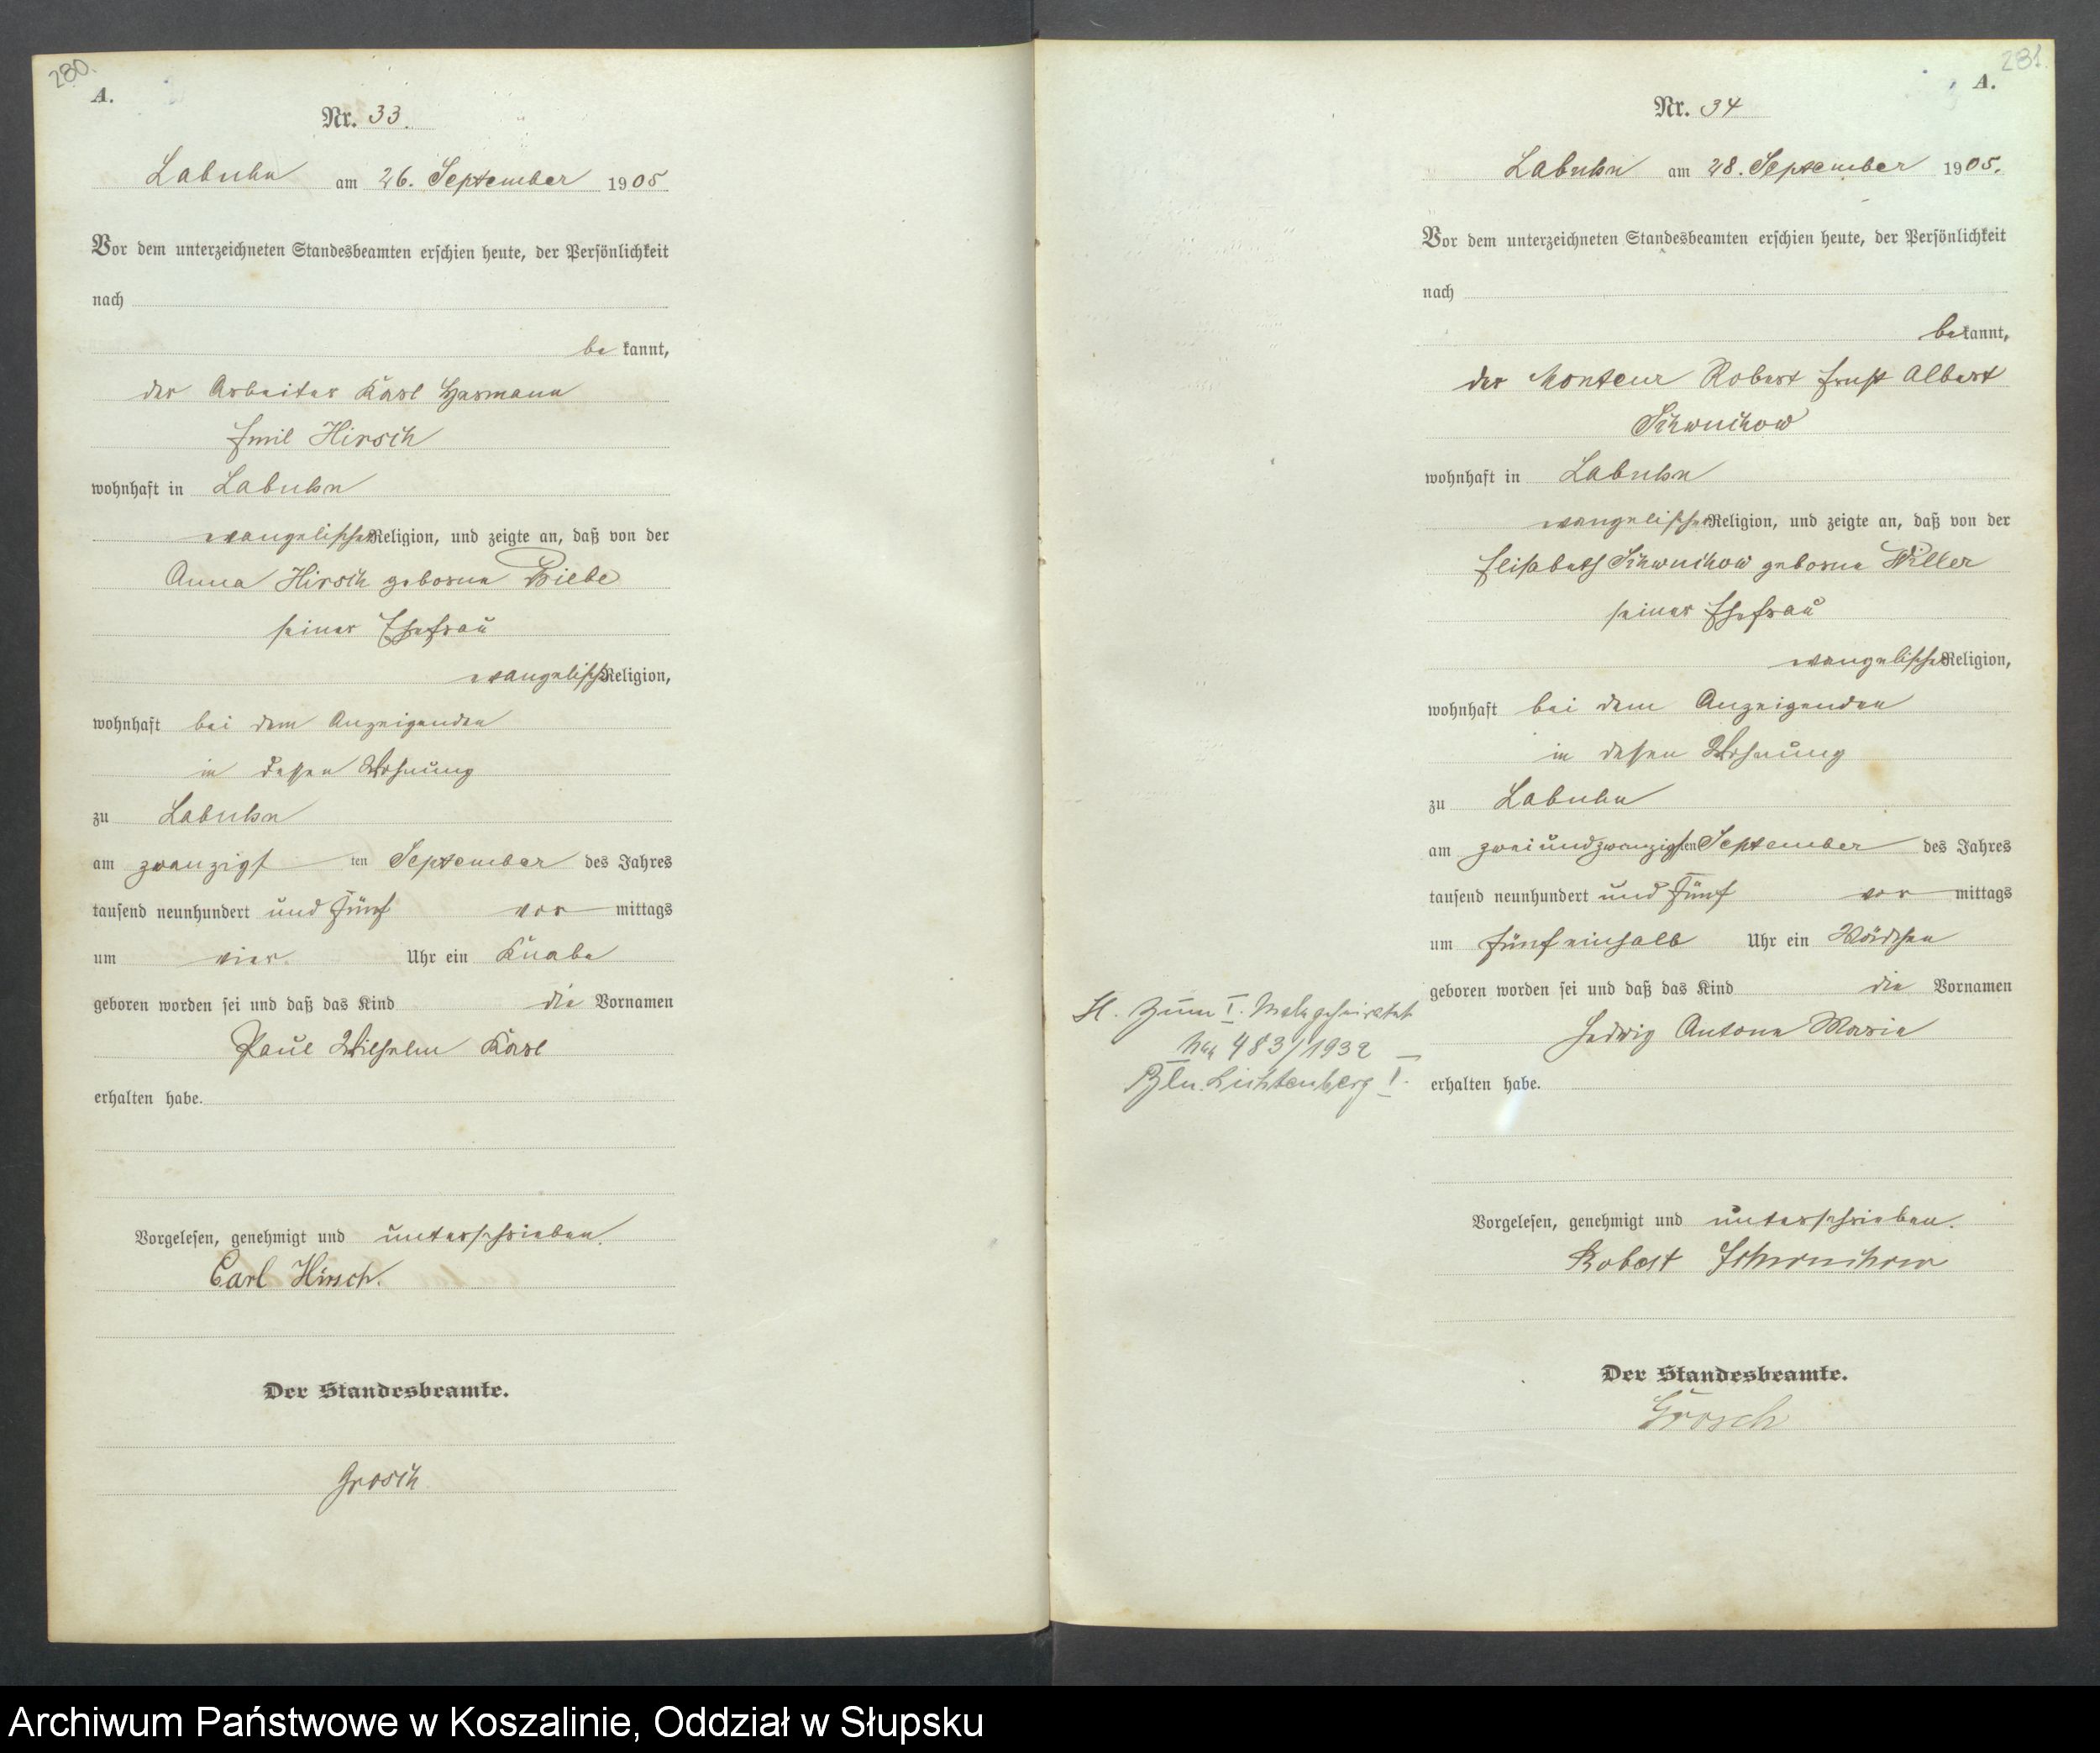 280.
A.
Nr. 33.
Labuhn am 26. September 1905
Vor dem unterzeichneten Standesbeamten erschien heute, der Persönlichkeit
nach
be kannt,
der Arbeiter Karl Hermann
Emil Hirsch
wohnhaft in Labuhn
evangelischer Religion, und zeigte an, daß von der
Anna Hirsch geborene
seiner Ehefrau
evangelischer Religion,
wohnhaft bei dem Anzeigenden
in dessen Wohnung
zu Labuhn
am zwanzigsten September des Jahres
tausend neunhundert und fünf vor mittags
um vier Uhr ein Knabe
geboren worden sei und daß das Kind die Vornamen
Paul Wilhelm Karl
erhalten habe.
Vorgelesen, genehmigt und unterschrieben.
Carl Hirsch.
Der Standesbeamte.
Grosch
281.
A.
Nr. 34
Labuhn am 28. September 1905.
Vor dem unterzeichneten Standesbeamten erschien heute, der Persönlichkeit
nach
bekannt,
der Monteur Robert Ernst Albert
Schwuchow
wohnhaft in Labuhn
evangelischer Religion, und zeigte an, daß von der
Elisabeth Schwuchow geborene
seiner Ehefrau
evangelischer Religion,
wohnhaft bei dem Anzeigenden
in dessen Wohnung
zu Labuhn
am zweiundzwanzigsten September des Jahres
tausend neunhundert und fünf vor mittags
um fünfeinhalb Uhr ein Mädchen
geboren worden sei und daß das Kind die Vornamen
Hedwig Antone Marie
erhalten habe.
H. Zum I. Male geheiratet
483/1932
Bln. Lichtenberg I.
Vorgelesen, genehmigt und unterschrieben.
Robert Schwuchow
Der Standesbeamte.
Grosch
Archiwum Państwowe w Koszalinie, Oddział w Słupsku